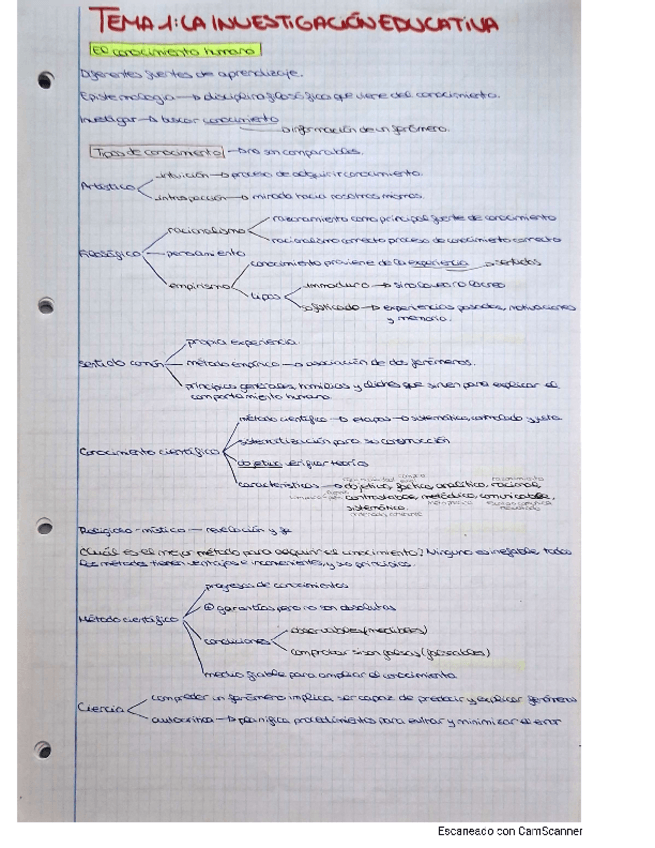 TEMA 1: LA INVESTIGACIÓN EDUCATIVA
El conocimiento humano
Diferentes fuentes de aprendizaje.
Epistemología → disciplina filosófica que viene del conocimiento.
Investigar → buscar conocimiento
→ información de un fenómeno.
Tipos de conocimiento → no son comparables.
Artístico
intuición → proceso de adquirir conocimiento.
introspección → mirada hacia nosotros mismos.
Filosófico
racionalismo
razonamiento como principal fuente de conocimiento
racionalismo correcto proceso de conocimiento correcto
pensamiento
empirismo
conocimiento proviene de la experiencia → sentidos
tipos
inmaduro → si no lo veo no lo creo
sofisticado → experiencias pasadas, motivaciones
y memoria.
Sentido común
propia experiencia.
método empírico → asociación de dos fenómenos.
principios generales, homilías y clichés que sirven para explicar el
comportamiento humano.
Conocimiento científico
método científico → etapas → sistemática, controlado y justa
sistematización para su construcción
objetivo:
características → objetivo, fáctico, analítico, racional,
contrastable, metódico, comunicable,
sistemático.
Religioso-místico — revelación y fe
¿Cuál es el mejor método para adquirir el conocimiento? Ninguno es infalible, todos
los métodos tienen ventajas e inconvenientes, y sus principios.
Método científico
progresos de conocimientos
⊕ garantías pero no son absolutas
condiciones
observables (medibles)
comprobar si son falsas (falseables)
medio fiable para ampliar el conocimiento
Ciencia
comprender un fenómeno implica ser capaz de predecir y explicar fenómeno
autocrítica → planifica procedimientos para evitar y minimizar el error
Escaneado con CamScanner